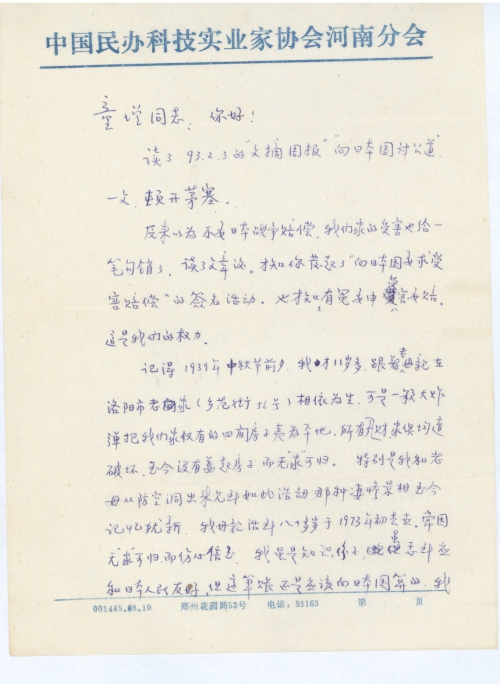 中国民办科技实业家协会河南分会
童增同志：你好！
读了93.2.3的"文摘周报""向日本国讨公道"
一文，顿开茅塞。
原来以为不要日本战争赔偿，我们家的受害也给一
笔勾销了，读了文章后，才知你发起了"向日本国要求受
害赔偿"的签名活动，也才知有冤要申
这是我们的权力。
记得1939年中秋节前夕，我才11岁多，跟着母亲在
洛阳市老家（ 56号）相依为生，可是一颗大炸
弹把我们家仅有的四间房子夷为平地，所有财 家俱均遭
破坏，至今没有盖起房子而无"家"可归。特别是我和老
母从防空洞出来 那种凄惨景相至今
记忆犹新，我母亲活到八十多岁于1973年初去世，常因
无"家"可归而伤心 我虽是知识份子，
和日本人民友好，但这笔账还是应该向日本国算的，我
001445.88.10 郑州花园路53号 电话：53163 第 页